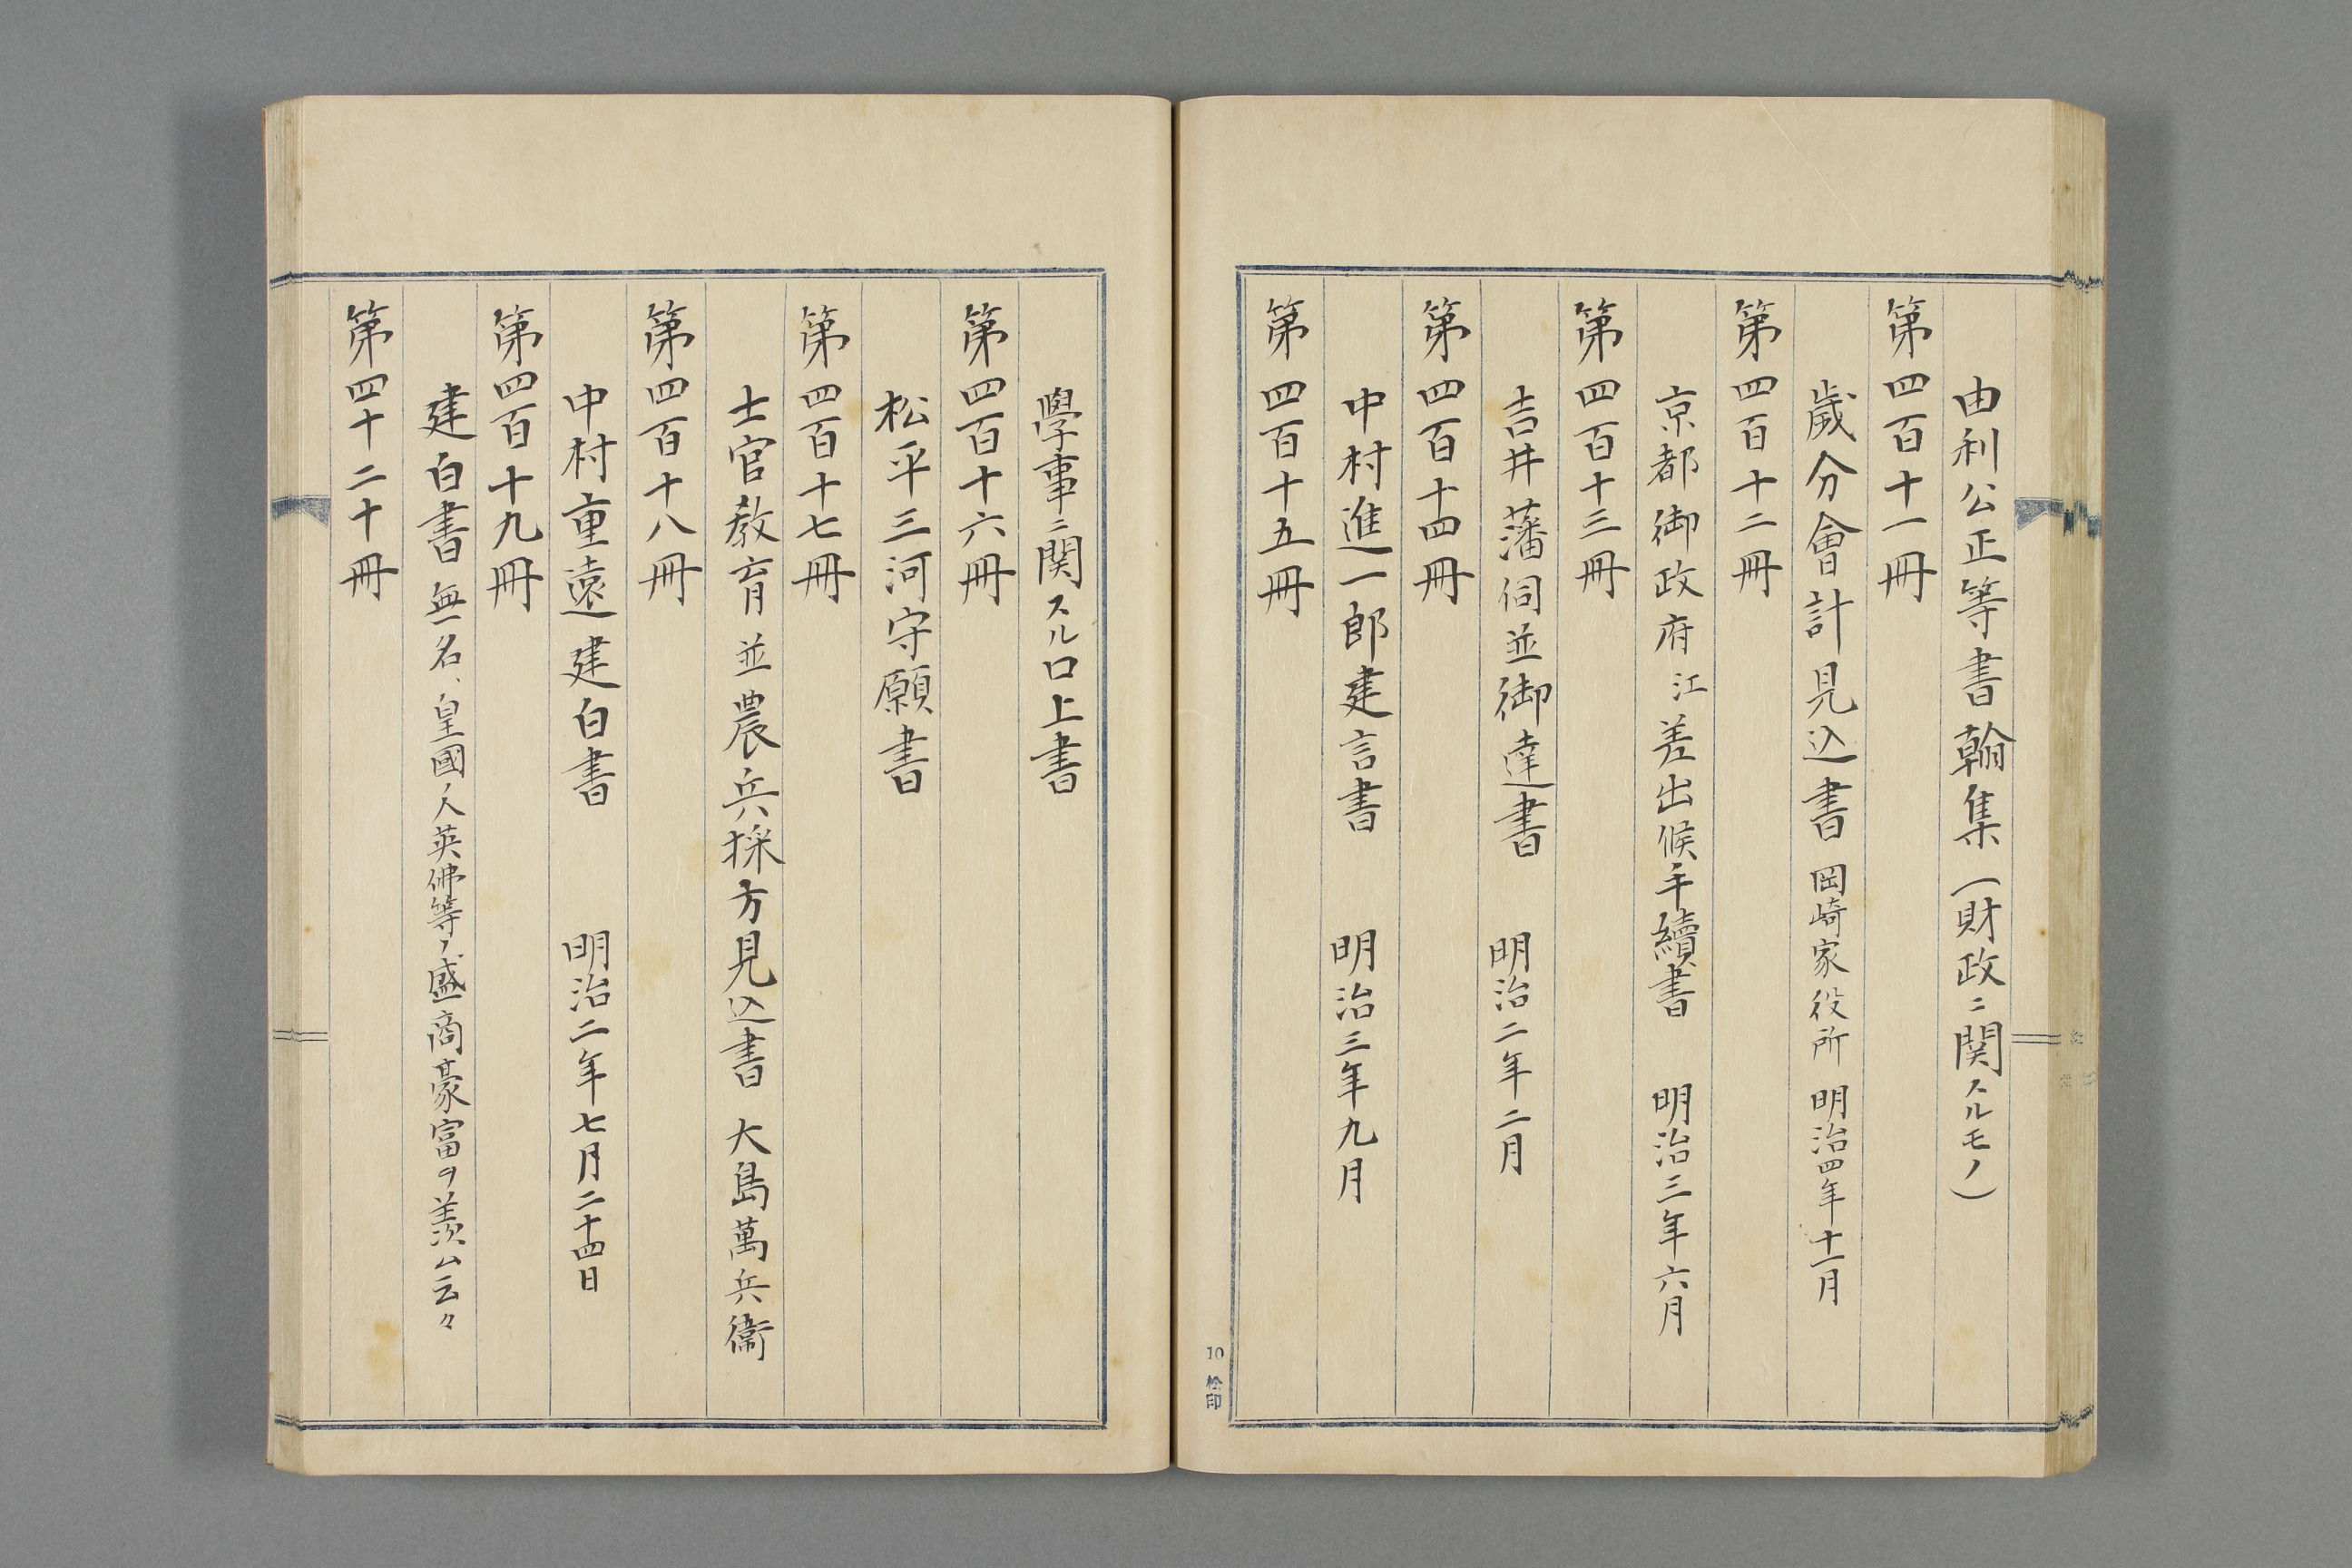 由利公正等書翰集(財政ニ関スルモノ)
第四百十一冊
歳分會計見込書 岡崎家役所 明治四年十一月
第四百十二冊
京都御政府江差出候手續書 明治三年六月
第四百十三冊
吉井藩伺並御達書 明治二年二月
第四百十四冊
中村進一郎建言書 明治三年九月
第四百十五冊
10 松印
學事ニ関スル口上書
第四百十六冊
松平三河守願書
第四百十七冊
士官教育並農兵採方見込書 大島萬兵衞
第四百十八冊
中村重遠建白書 明治二年七月二十四日
第四百十九冊
建白書 無名、皇國ノ人英佛等ノ盛商豪富ヲ羨ム云々
第四十二十冊